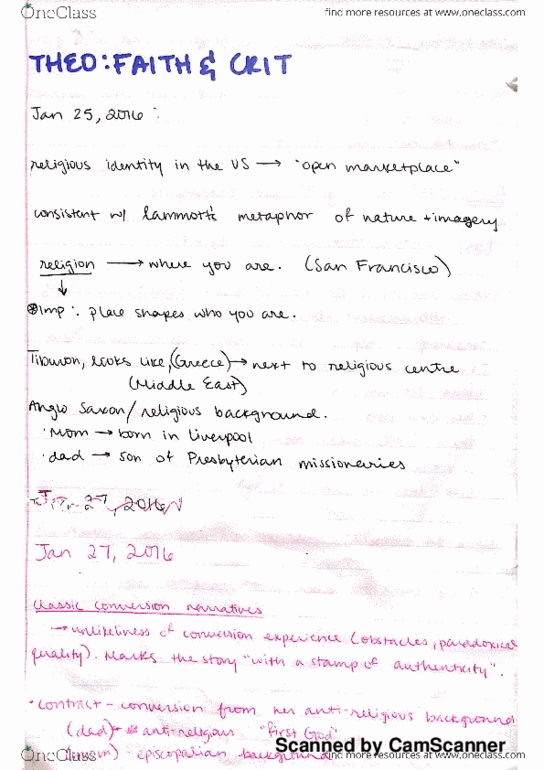 OneClass
find more resources at www.oneclass.com
THEO: FAITH & CRIT
Jan 25, 2016 :
religious identity in the US → "open marketplace"
consistent w/ lammott's metaphor of nature + imagery
religion → where you are. (San Francisco)
↓
imp : place shapes who you are.
Tiburon, looks like, (Greece) → next to religious centre
(Middle East)
Anglo Saxon / religious background.
· Mom → born in Liverpool
· dad → son of Presbyterian missionaries
27, 2016
Jan 27, 2016
classic conversion narratives
→ unlikeliness of conversion experience (obstacles, paradoxical
quality). Marks the story "with a stamp of authenticity".
· contract - conversion from her anti-religious background
(dad) → anti-religion "first God"
- episcopalian background
Scanned by CamScanner
OneClass
find more resources at www.oneclass.com